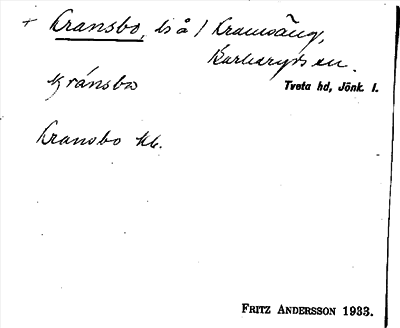 + Kransbo, ls å / Kramsäng,
Barkeryds sn.
Tveta hd, Jönk. l.
kránsbo
Kransbo Hb.
FRITZ ANDERSSON 1933.